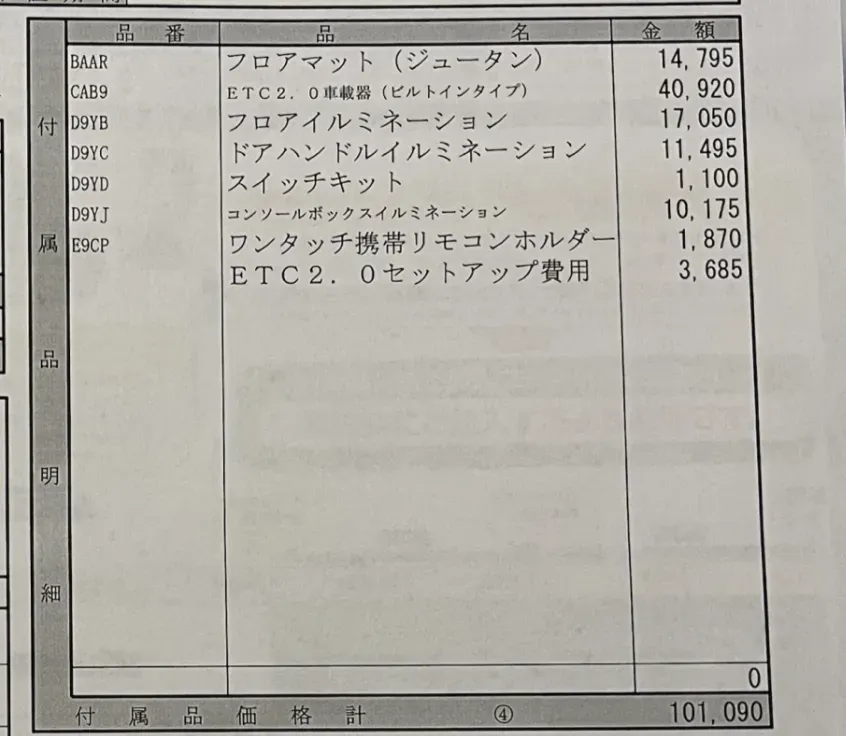 品 番 品 名 金 額
BAAR フロアマット（ジュータン） 14,795
CAB9 ＥＴＣ２．０車載器（ビルトインタイプ） 40,920
D9YB フロアイルミネーション 17,050
D9YC ドアハンドルイルミネーション 11,495
D9YD スイッチキット 1,100
D9YJ コンソールボックスイルミネーション 10,175
E9CP ワンタッチ携帯リモコンホルダー 1,870
ＥＴＣ２．０セットアップ費用 3,685
付属品明細
0
付 属 品 価 格 計 ④ 101,090